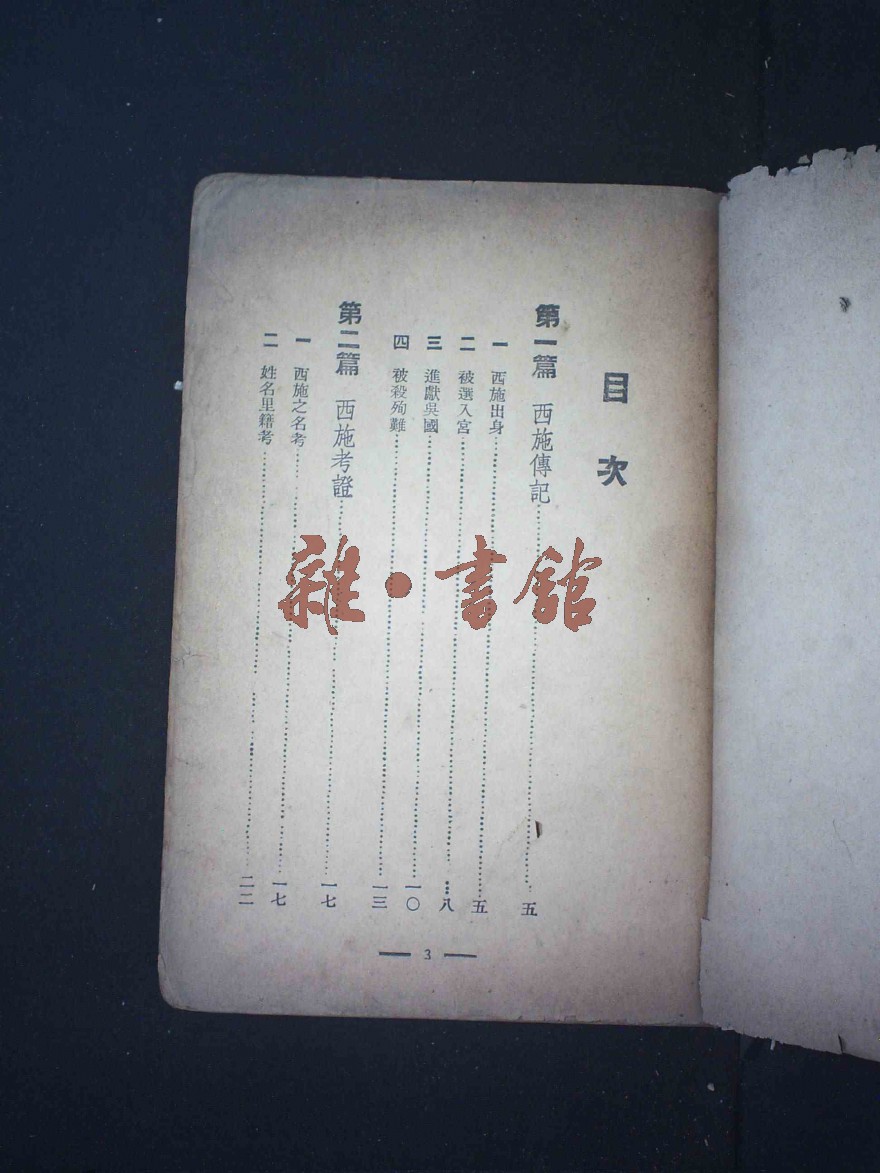 目次
第一篇 西施傳記……五
一 西施出身……五
二 被選入宮……八
三 進獻吳國……一〇
四 被殺殉難……一三
第二篇 西施考證……一七
一 西施之名考……一七
二 姓名里籍考……二二
— 3 —
雜·書館